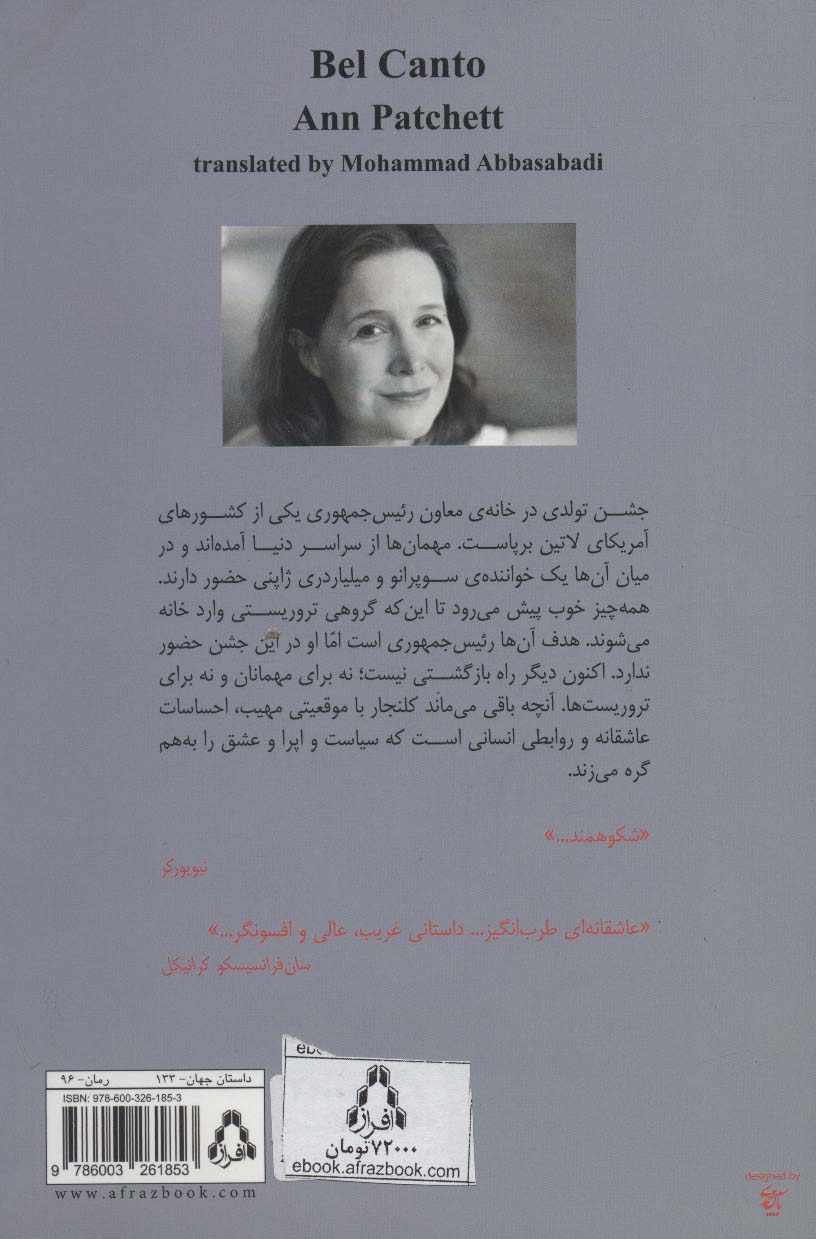 Bel Canto
Ann Patchett
translated by Mohammad Abbasabadi
جشن تولدی در خانه‌ی معاون رئیس‌جمهوری یکی از کشورهای
آمریکای لاتین برپاست. مهمان‌ها از سراسر دنیا آمده‌اند و در
میان آن‌ها یک خواننده‌ی سوپرانو و میلیاردری ژاپنی حضور دارند.
همه‌چیز خوب پیش می‌رود تا این‌که گروهی تروریستی وارد خانه
می‌شوند. هدف آن‌ها رئیس‌جمهوری است امّا او در این جشن حضور
ندارد. اکنون دیگر راه بازگشتی نیست؛ نه برای مهمانان و نه برای
تروریست‌ها. آنچه باقی می‌ماند کلنجار با موقعیتی مهیب، احساسات
عاشقانه و روابطی انسانی است که سیاست و اپرا و عشق را به‌هم
گره می‌زند.
«شکوهمند...»
نیویورکر
«عاشقانه‌ای طرب‌انگیز... داستانی غریب، عالی و افسونگر...»
سان‌فرانسیسکو کرانیکل
داستان جهان- ۱۳۳ رمان- ۹۶
ISBN: 978-600-326-185-3
9 786003 261853
افراز
www.afrazbook.com
افراز
۷۲۰۰۰تومان
ebook.afrazbook.com
designed by